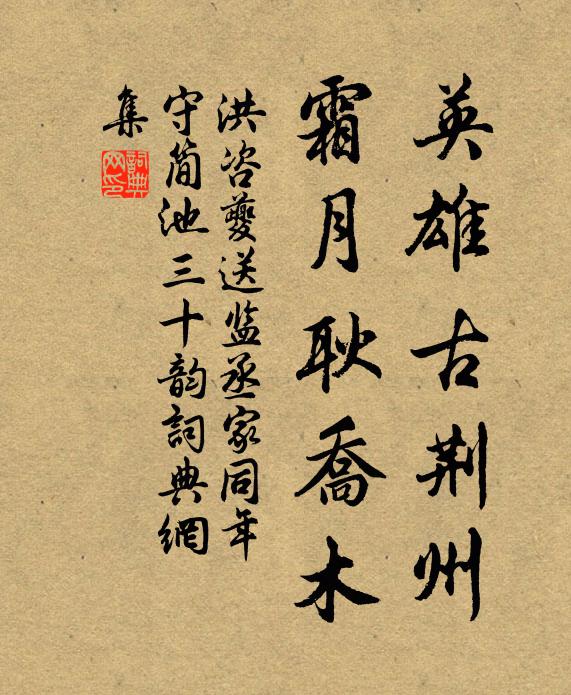 英雄古荆州
霜月耿喬木
洪咨夔送监丞家同年
守简池三十韵詞典網
集
詞典
网印